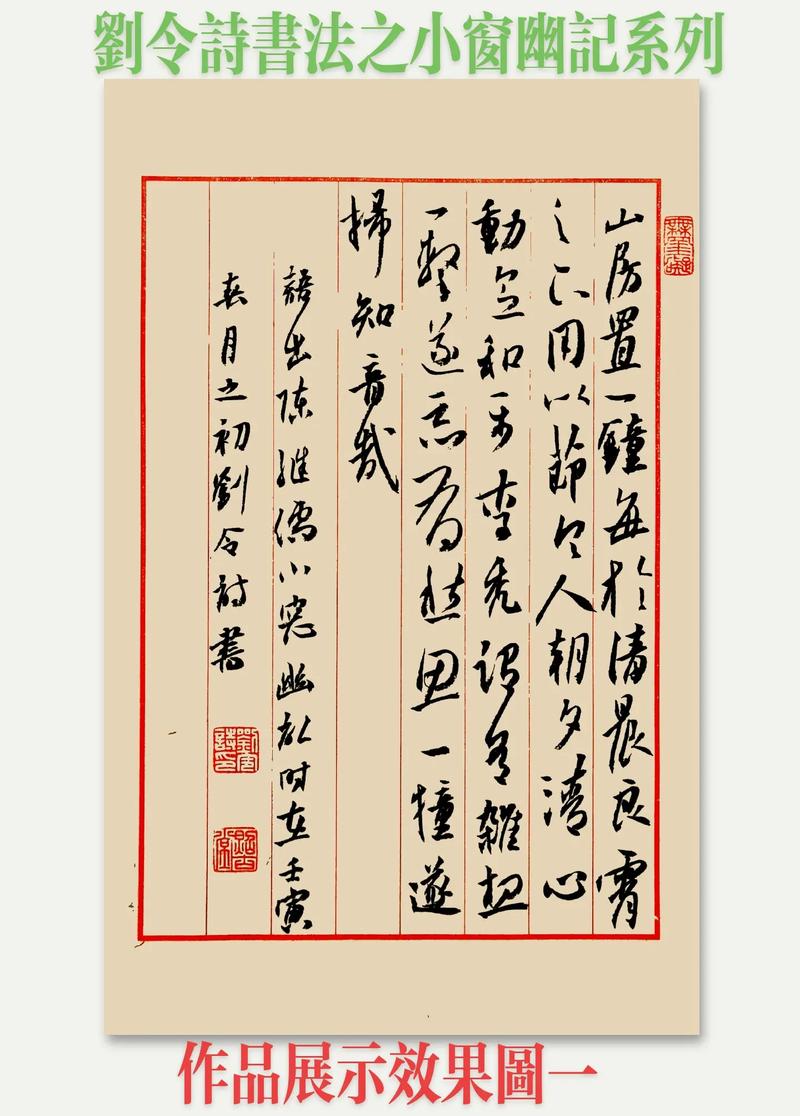 劉令詩書法之小窗幽記系列
山房置一鐘每於清晨良宵
之下用以節令人朝夕清心
動念和平李禿謂有雜想
一擊遂忘有愁思一撞遂
掃知音哉
語出陳繼儒小窗幽記時在壬寅
春月之初劉令詩書
劉令詩印
作品展示效果圖一